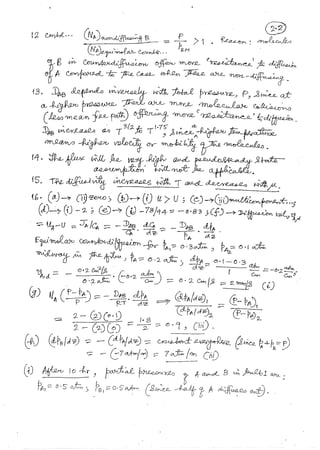 2-2
12 contd... (N_A) nondiffusing B / (N_A) equimolar count... = P / p_BM > 1. Reason: molecules
of B in counterdiffusion offer more "resistance" to diffusion
of A compared to the case when these are non-diffusing.
13. D_AB depends inversely with total pressure, P, since at
a higher pressure there are more molecular collisions
(less mean free path) offering more "resistance" to diffusion.
D_AB increases as T^3/2 to T^1.75, since higher temperature
means higher velocity or mobility of the molecules.
14. The flux will be very high and pseudosteady state
assumption will not be applicable.
15. The diffusivity increases with T and decreases with μ.
16. (a) → (i) zero; (b) → (i) U > u; (c) → (ii) multicomponent...;
(d) → (i) - 2; (e) → (i) - 78/94 = -0.83; (f) →
= u_A - U = J_A/C_A = - D_AB/C_A dC_A/dz = - D_AB/p_A · dp_A/dz
Equimolar counterdiffusion - for p_A1 = 0.3 atm, p_A2 = 0.1 atm
midway in the film, p_A = 0.2 atm; dp_A/dz = 0.1 - 0.3 / 1 atm/cm = -0.2 atm/cm
= - 0.2 cm²/s / 0.2 atm · (-0.2 atm/cm) = 0.2 cm/s = 2 mm/s (i)
(g) N_A (P - p_A)/P = - D_AB/RT dp_A/dz ⇒ (dp_A/dz)_1 / (dp_A/dz)_2 = (P - p_A)_1 / (P - p_A)_2
= 2 - (2)(0.1) / 2 - (2)(0) = 1.8 / 2 = 0.9, (ii).
(h) (dp_B/dz) = - (dp_A/dz) = constant everywhere (since p_A + p_B = P)
= - (-7 atm/m) = 7 atm/m (ii)
(i) After 10 hr, partial pressures of A and B in bulb 1 are:
p_A1 = 0.5 atm, p_B1 = 0.5 atm (Since half of A diffuses out).